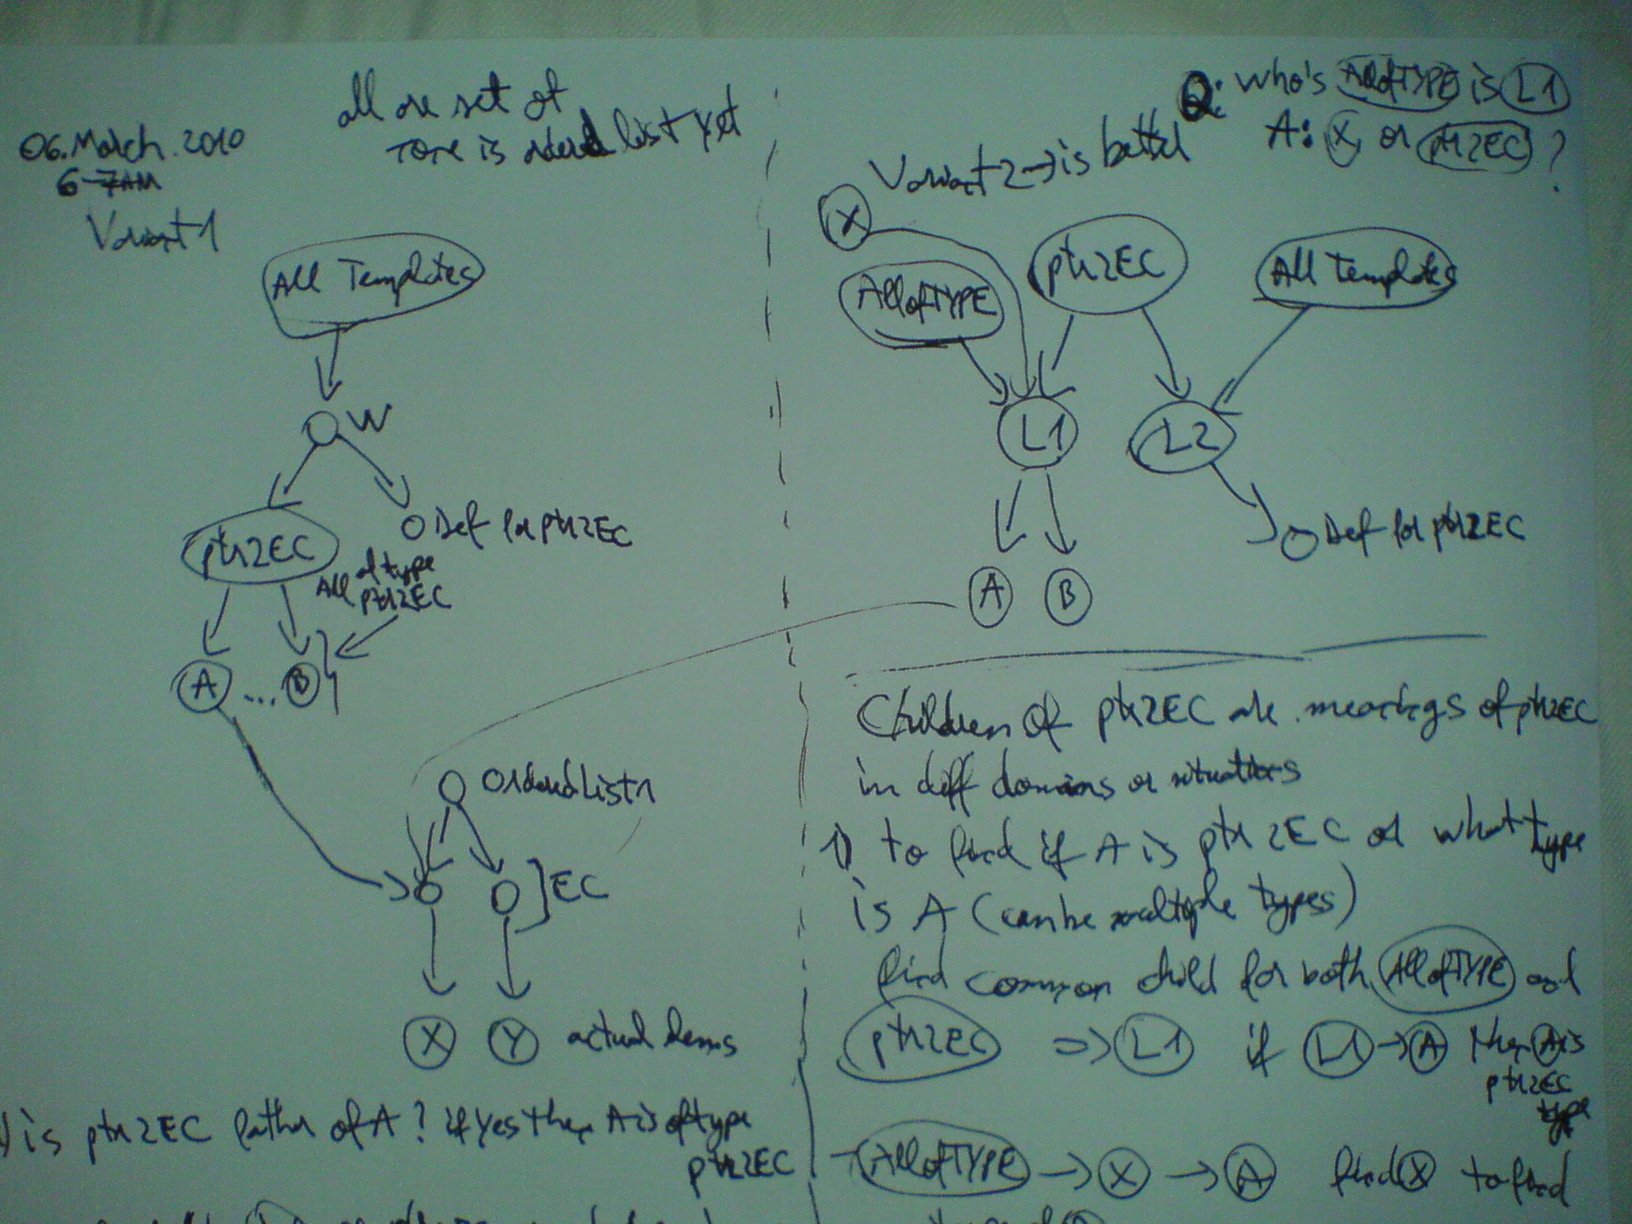 06.March.2010
6-7AM
all are set of
none is ordered list yet
Variant 1
All Templates
W
ptr2EC
Def for ptr2EC
All of type
ptr2EC
A ... B
OrderedList1
EC
X Y actual items
is ptr2EC father of A? if yes then A is of type
ptr2EC
Q: Who's AllofTYPE is L1
A: X or ptr2EC ?
Variant 2 -> is better
X
AllofTYPE
ptr2EC
All Templates
L1 L2
Def for ptr2EC
A B
Children of ptr2EC are meanings of ptr2EC
in diff domains or situations
1) to find if A is ptr2EC or what type
is A (can be multiple types)
find common child for both AllofTYPE and
ptr2EC => L1 if L1 -> A then A is
ptr2EC
type
AllofTYPE -> X -> A find X to find